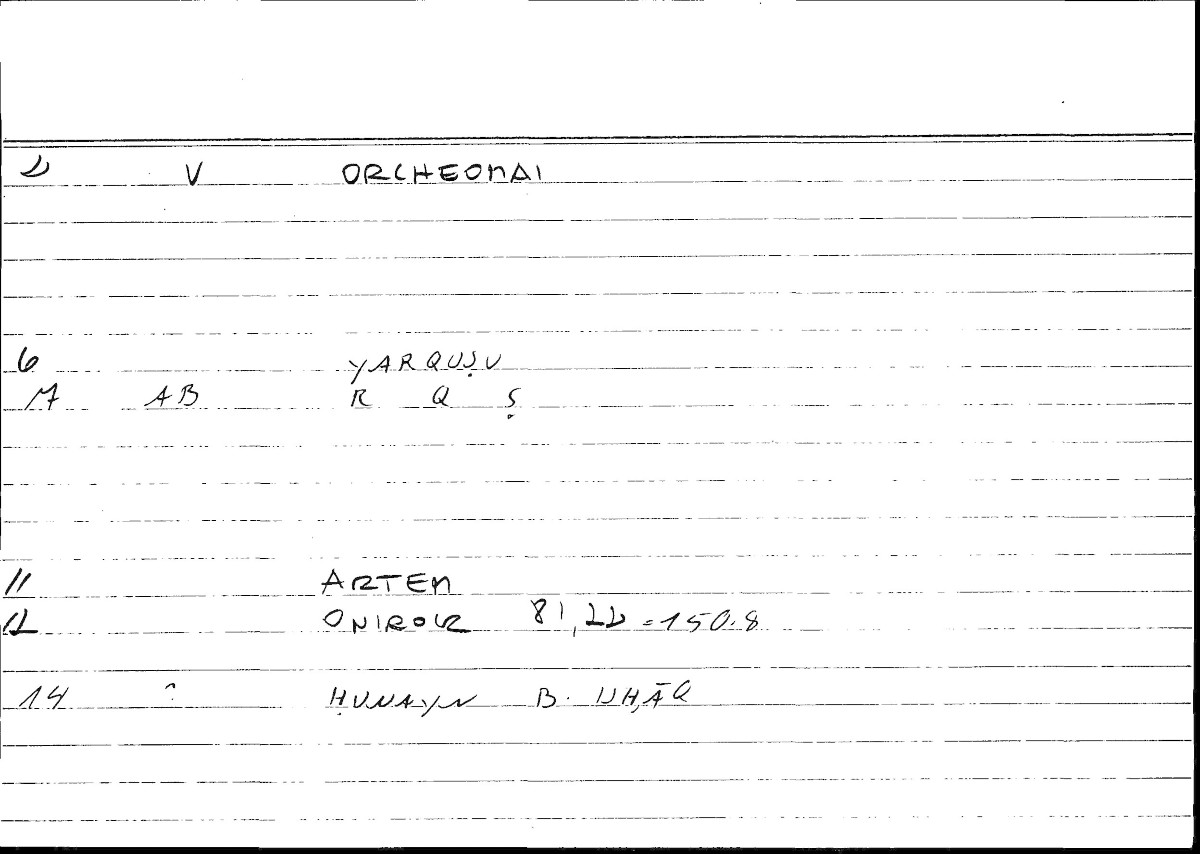 2 V ORCHEOMAI
6 YARQUṢU
7 AB R Q Ṣ
11 ARTEM
12 ONIROCR 81,22 = 150.8
14 ? ḤUNAYN B. ISḤĀQ